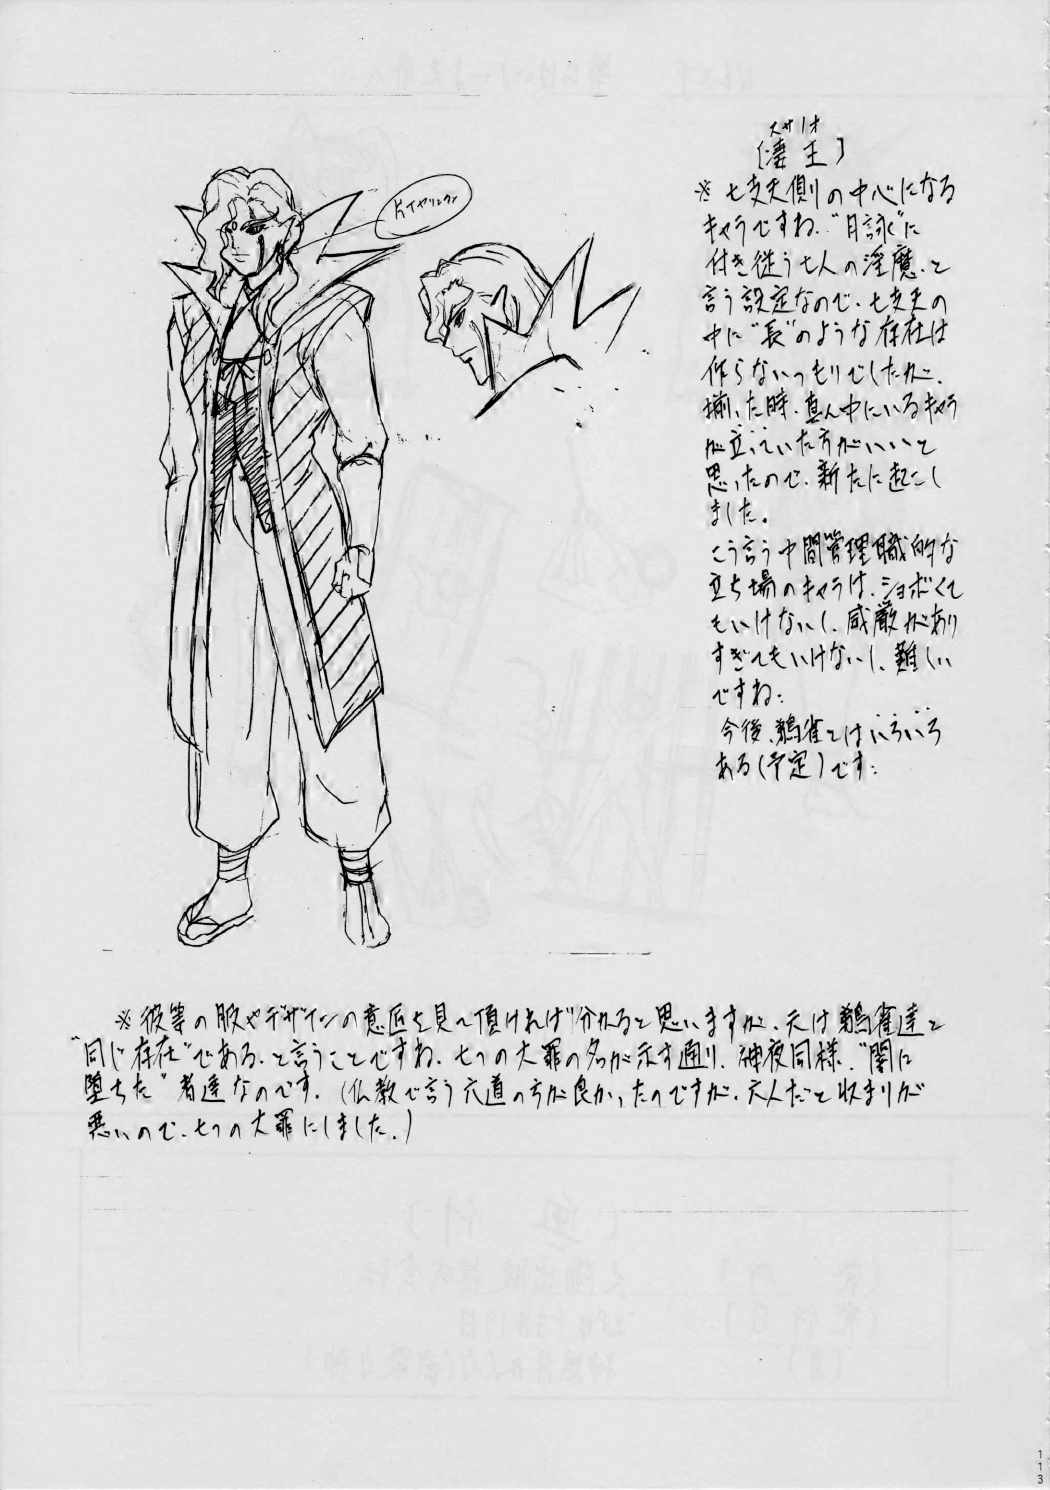 スサノオ
〔凄王〕
片イヤリング
※七支天側の中心になる
キャラですね。"月詠"に
付き従う七人の淫魔、と
言う設定なので、七支天の
中に"長"のような存在は
作らないつもりでしたが、
揃った時、真ん中にいるキャラ
が立っていた方がいいと
思ったので、新たに起こし
ました。
こう言う中間管理職的な
立ち場のキャラは、ショボくて
もいけないし、威厳があり
すぎてもいけないし、難しい
ですね…
今後、鵺雀とはいろいろ
ある(予定)です…
※彼等の服やデザインの意匠を見て頂ければ分かると思いますが、元は鵺雀達と
"同じ存在"である、と言うことですね。七つの大罪の名が示す通り、神夜同様、"闇に
堕ちた"者達なのです。(仏教で言う六道の方が良かったのですが、六人だと収まりが
悪いので、七つの大罪にしました。)
113